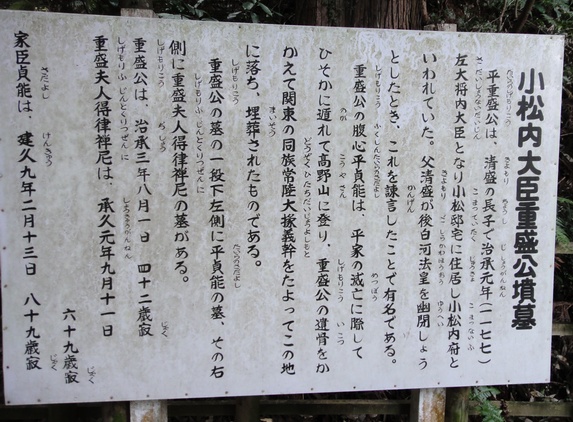 小松内大臣重盛公墳墓
平重盛公は、清盛の長子で治承元年(一一七七)
左大将内大臣となり小松邸宅に住居し小松内府と
いわれていた。父清盛が後白河法皇を幽閉しよう
としたとき、これを諫言したことで有名である。
重盛公の腹心平貞能は、平家の滅亡に際して
ひそかに遁れて高野山に登り、重盛公の遺骨をか
かえて関東の同族常陸大掾義幹をたよってこの地
に落ち、埋葬されたものである。
重盛公の墓の一段下左側に平貞能の墓、その右
側に重盛夫人得律禅尼の墓がある。
重盛公は、治承三年八月一日 四十二歳寂
重盛夫人得律禅尼は、承久元年九月十一日
六十九歳寂
家臣貞能は、建久九年二月十三日 八十九歳寂